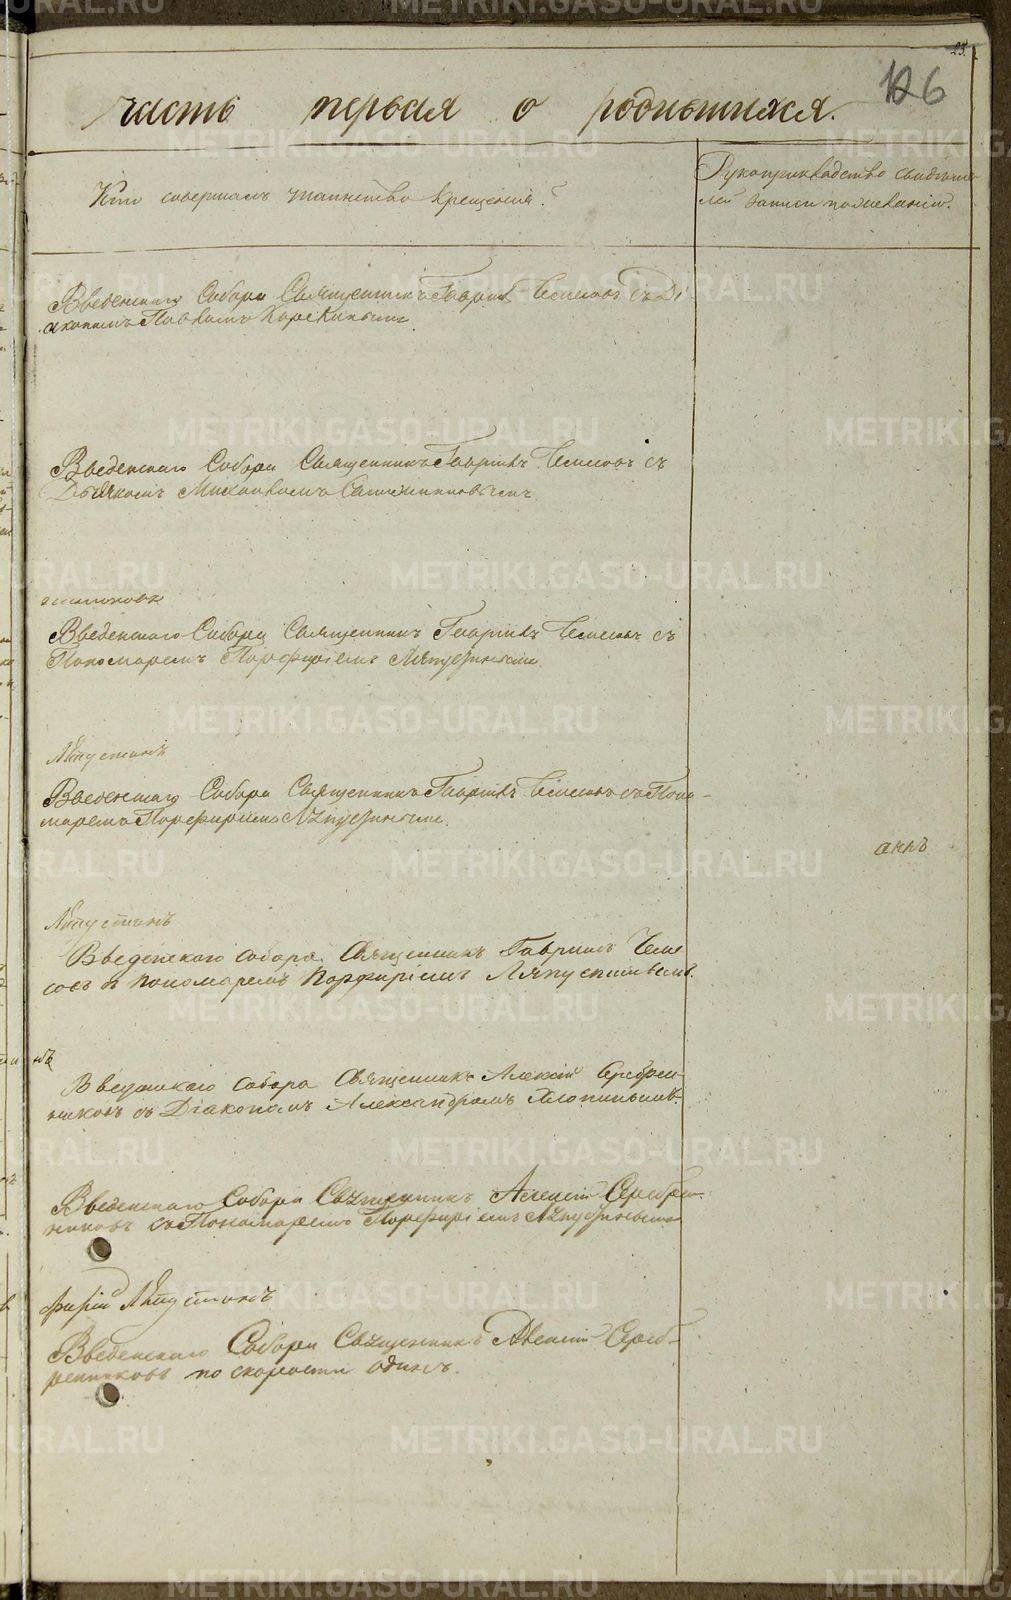 25.
126
часть первая о родившихся.
Кто совершалъ таинство крещенія?
Рукоприкладство свидѣте-
лей записи по желанію.
Введенскаго Собора Священникъ Гаврiилъ Чемесовъ съ Ді
акономъ Павломъ
Введенскаго Собора Священникъ Гаврiилъ Чемесовъ съ
Дьячкомъ Михаиломъ
Введенскаго Собора Священникъ Гаврiилъ Чемесовъ съ
Пономаремъ Порфиріемъ Ляпустинымъ.
Ляпустинъ
Введенскаго Собора Священникъ Гаврiилъ Чемесовъ съ Поно-
маремъ Порфиріемъ Ляпустинымъ.
Ляпустинъ
Введенскаго собора Священникъ Гавриилъ Чеме
совъ съ пономаремъ Порфиріемъ Ляпустинымъ.
Введенскаго собора Священникъ Алексій Серебрен-
никовъ съ Діакономъ Александромъ Хлопинымъ.
Введенскаго Собора Священникъ Алексій Серебрен-
никовъ съ Пономаремъ Порфиріемъ Ляпустинымъ
фирій Ляпустинъ
Введенскаго Собора Священникъ Алексій Сереб-
ренниковъ по скорости одинъ.
METRIKI.GASO-URAL.RU